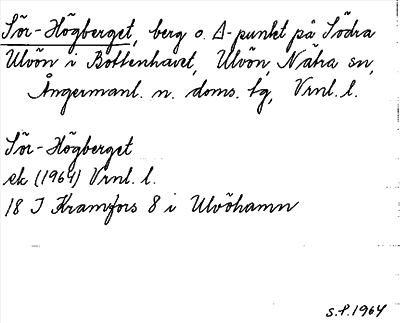 Sör-Högberget, berg o. Δ-punkt på Södra
Ulvön i Bottenhavet, Ulvön, Nätra sn,
Ångermanl. n. doms. tg, Vrnl. l.
Sör-Högberget
ek (1964) Vrnl. l.
18 I Kramfors 8 i Ulvöhamn
S.P. 1964